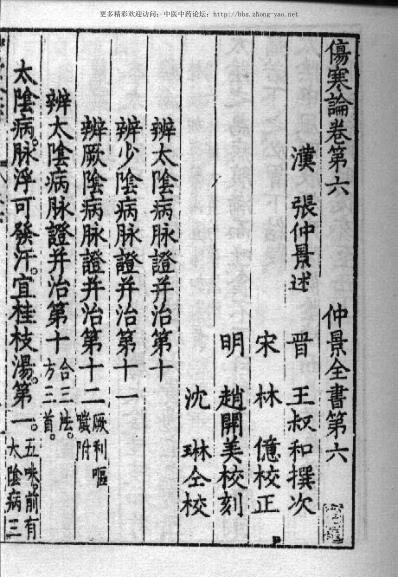 更多精彩欢迎访问:中医中药论坛:http://bbs.zhong-yao.net
傷寒論卷第六 仲景全書第六
漢 張仲景述 晉 王叔和撰次
宋 林 億校正
明 趙開美校刻
沈 琳仝校
辨太陰病脉證并治第十
辨少陰病脉證并治第十一
辨厥陰病脉證并治第十二 厥利嘔噦附
辨太陰病脉證并治第十 合三法。方三首。
太陰病。脉浮可發汗。宜桂枝湯。第一。五味。前有太陰病三